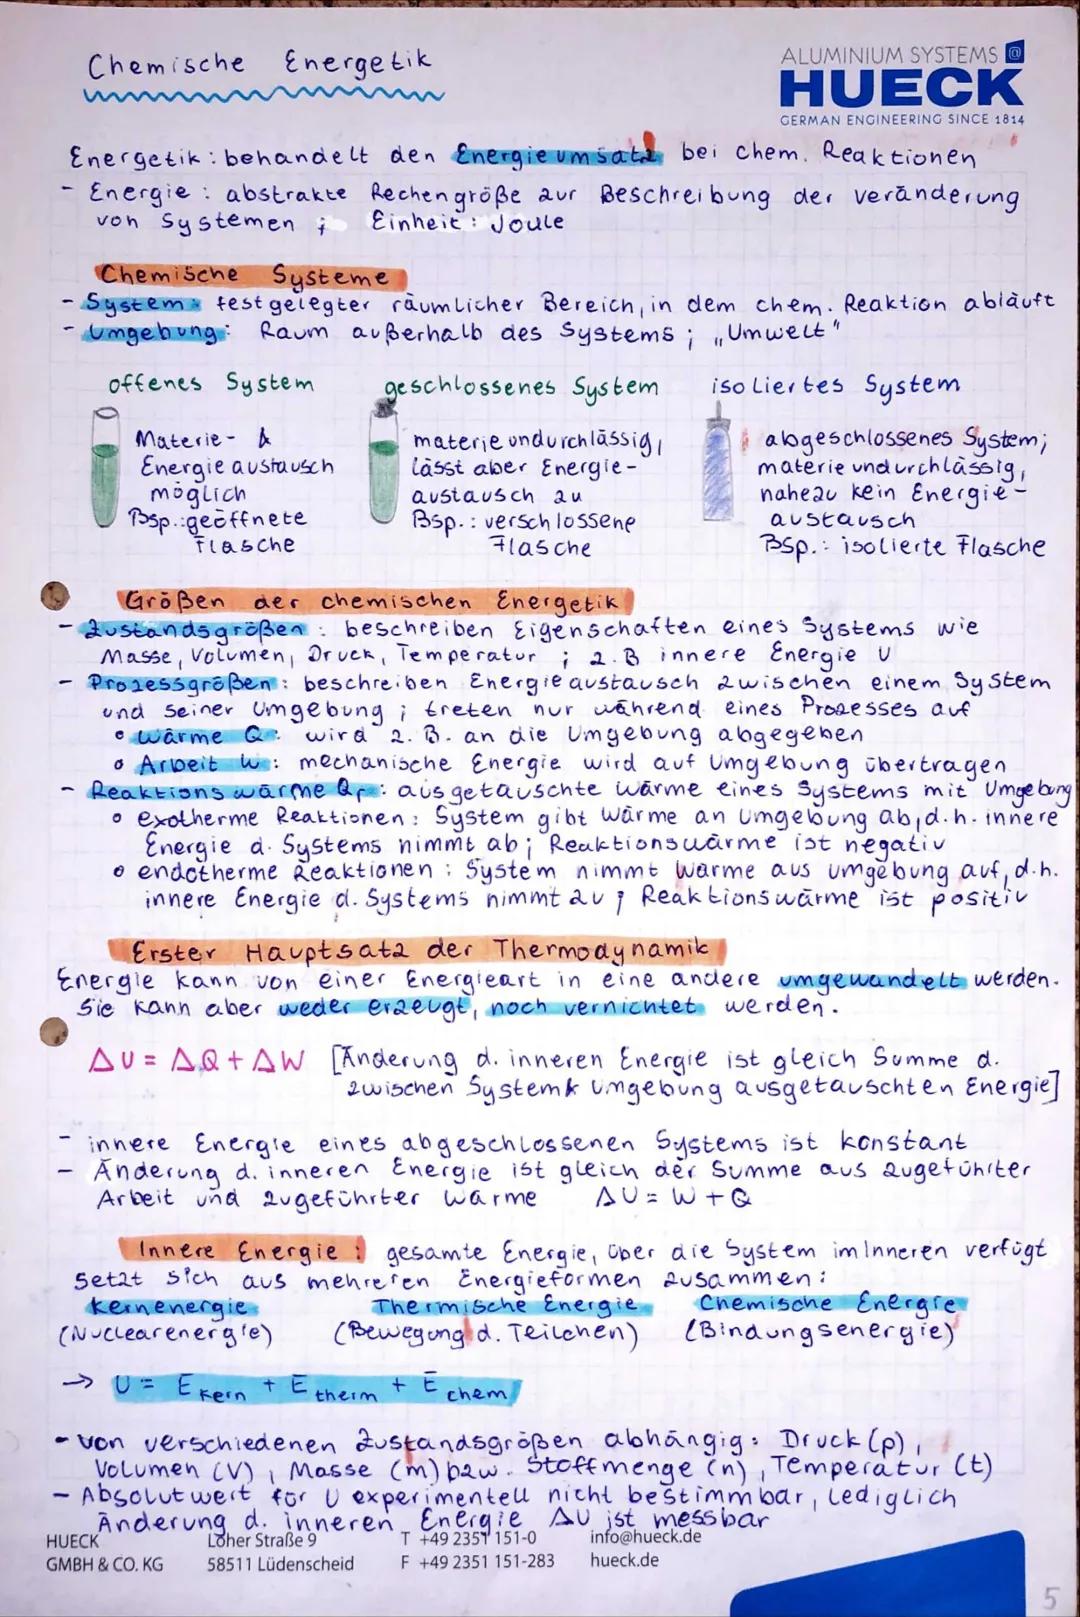 Chemische Energetik
ALUMINIUM SYSTEMS @
HUECK
GERMAN ENGINEERING SINCE 1814
Energetik: behandelt den Energieumsatz bei chem. Reaktionen
- Energie: abstrakte Rechengröße zur Beschreibung der Veränderung
von Systemen ; Einheit: Joule
Chemische Systeme
- System: festgelegter räumlicher Bereich, in dem chem. Reaktion abläuft
- Umgebung: Raum außerhalb des Systems; „Umwelt"
offenes System
Materie- &
Energieaustausch
möglich
Bsp.: geöffnete
Flasche
geschlossenes System
materieundurchlässig,
lässt aber Energie-
austausch zu
Bsp.: verschlossene
Flasche
isoliertes System
abgeschlossenes System;
materieundurchlässig,
nahezu kein Energie-
austausch
Bsp.: isolierte Flasche
Größen der chemischen Energetik
- Zustandsgrößen: beschreiben Eigenschaften eines Systems wie
Masse, Volumen, Druck, Temperatur ; z.B innere Energie U
- Prozessgrößen: beschreiben Energieaustausch zwischen einem System
und seiner Umgebung; treten nur während eines Prozesses auf
• Wärme Q: wird z.B. an die Umgebung abgegeben
• Arbeit W: mechanische Energie wird auf Umgebung übertragen
- Reaktionswärme Qr: ausgetauschte Wärme eines Systems mit Umgebung
• exotherme Reaktionen: System gibt Wärme an Umgebung ab, d.h. innere
Energie d. Systems nimmt ab; Reaktionswärme ist negativ
• endotherme Reaktionen: System nimmt Wärme aus Umgebung auf, d.h.
innere Energie d. Systems nimmt zu; Reaktionswärme ist positiv
Erster Hauptsatz der Thermodynamik
Energie kann von einer Energieart in eine andere umgewandelt werden.
Sie kann aber weder erzeugt, noch vernichtet werden.
ΔU = ΔQ + ΔW [Änderung d. inneren Energie ist gleich Summe d.
zwischen System & Umgebung ausgetauschten Energie]
- innere Energie eines abgeschlossenen Systems ist konstant
- Änderung d. inneren Energie ist gleich der Summe aus zugeführter
Arbeit und zugeführter Wärme ΔU = W + Q
Innere Energie: gesamte Energie, über die System im Inneren verfügt
setzt sich aus mehreren Energieformen zusammen:
Kernenergie Thermische Energie Chemische Energie
(Nuclearenergie) (Bewegung d. Teilchen) (Bindungsenergie)
→ U = E Kern + E therm + E chem
- von verschiedenen Zustandsgrößen abhängig: Druck (p),
Volumen (V), Masse (m) bzw. Stoffmenge (n), Temperatur (t)
- Absolutwert für U experimentell nicht bestimmbar, lediglich
Änderung d. inneren Energie ΔU ist messbar
HUECK Loher Straße 9 T +49 2351 151-0 info@hueck.de
GMBH & CO. KG 58511 Lüdenscheid F +49 2351 151-283 hueck.de
5